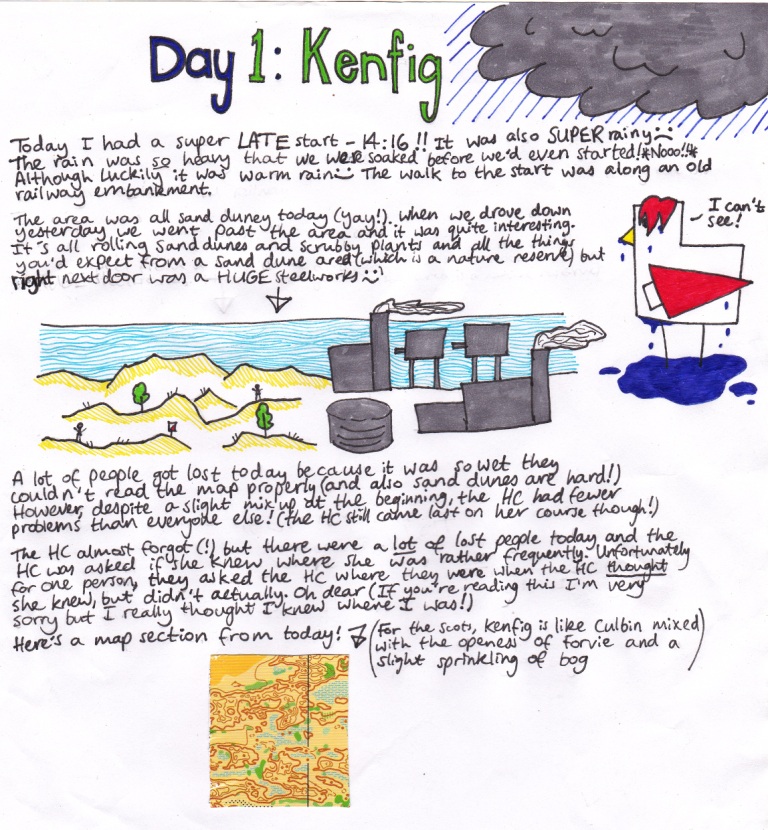 Day 1: Kenfig
Today I had a super LATE start - 14:16!! It was also SUPER rainy :(
The rain was so heavy that we were soaked before we'd even started! *Nooo!!*
Although luckily it was warm rain :) The walk to the start was along an old
railway embankment.
The area was all sand duney today (yay!). When we drove down
yesterday we went past the area and it was quite interesting.
It's all rolling sand dunes and scrubby plants and all the things
you'd expect from a sand dune area (which is a nature reserve) but
right next door was a HUGE steelworks :)
I can't
see!
A lot of people got lost today because it was so wet they
couldn't read the map properly (and also sand dunes are hard!)
However, despite a slight mix up at the beginning, the HC had fewer
problems than everyone else! (the HC still came last on her course though!)
The HC almost forgot (!) but there were a lot of lost people today and the
HC was asked if she knew where she was rather frequently. Unfortunately
for one person, they asked the HC where they were when the HC thought
she knew, but didn't actually. Oh dear (If you're reading this I'm very
sorry but I really thought I knew where I was!)
Here's a map section from today!
(For the Scots, Kenfig is like Culbin mixed
with the openess of Forvie and a
slight sprinkling of bog)